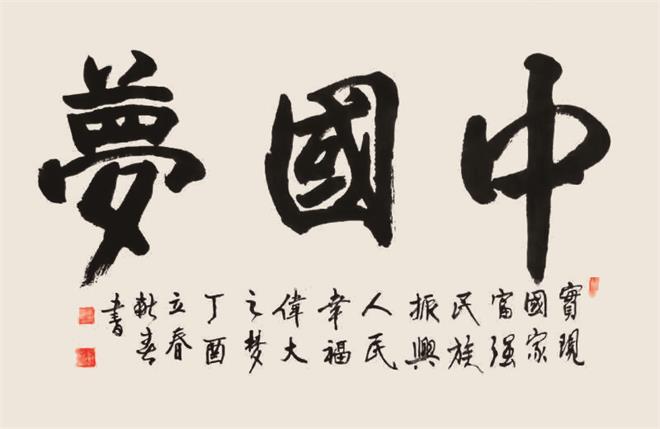 中國夢
實現
國家
富强
民族
振興
人民
幸福
偉大
之梦
丁酉
立春
春
書